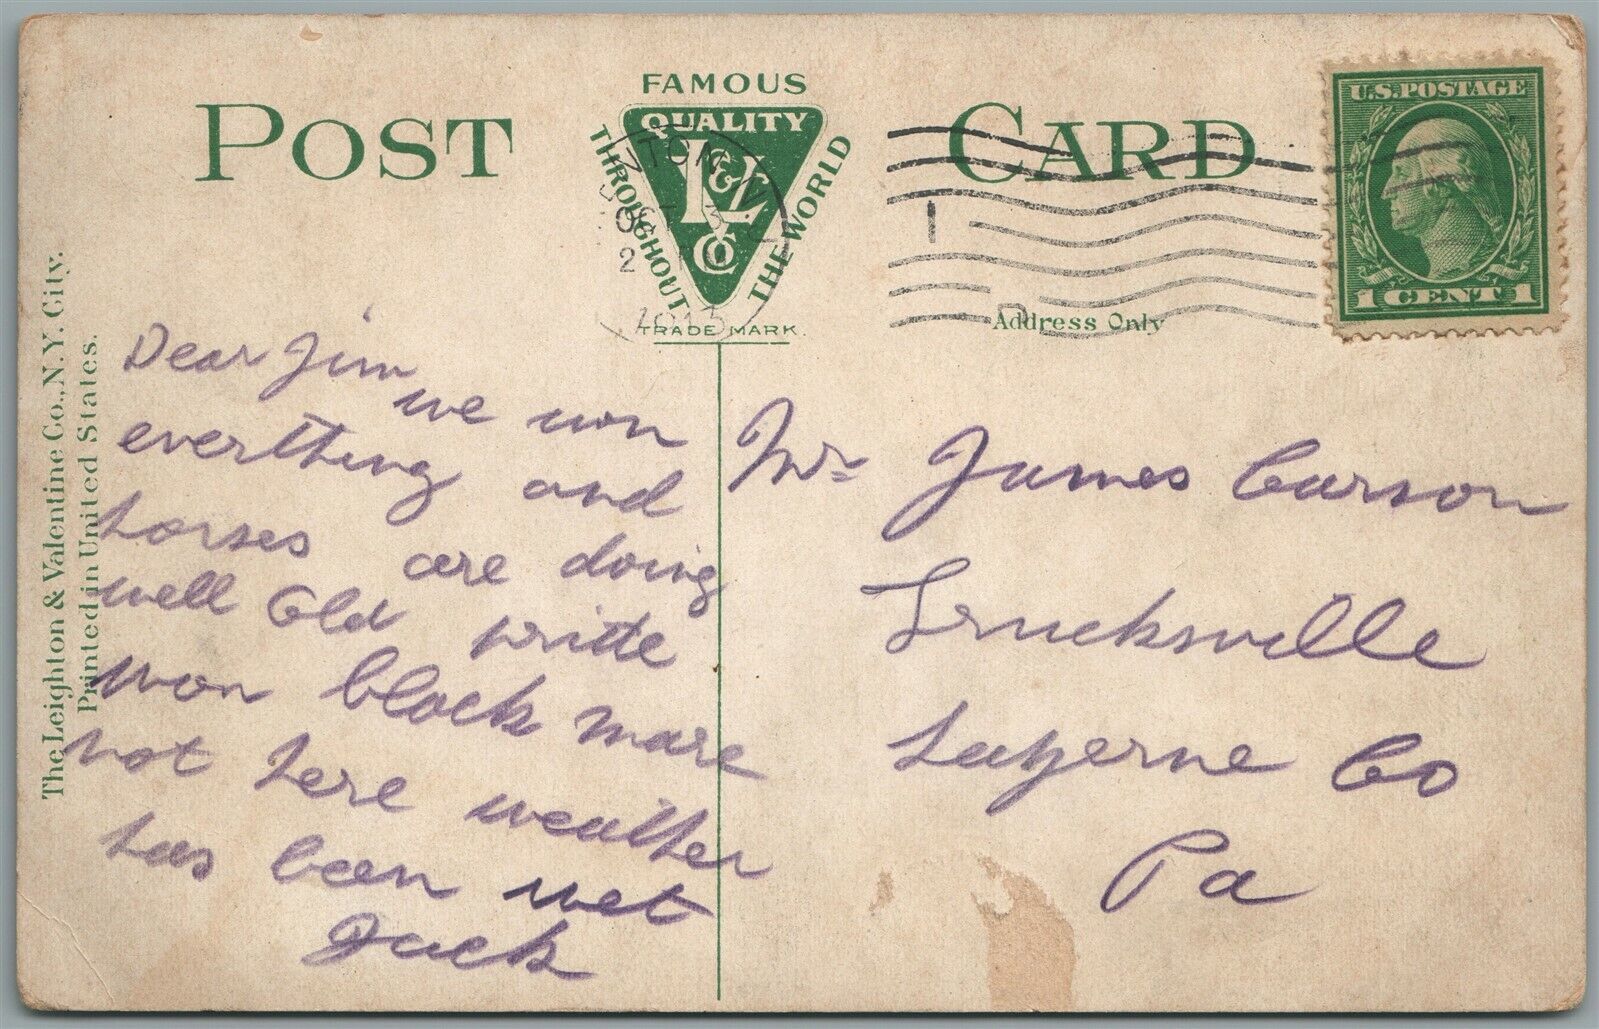 POST CARD
FAMOUS
QUALITY
L&V Co
THROUGHOUT THE WORLD
TRADE MARK.
NTON, N.
2
1913
1
U.S.POSTAGE
1 CENT 1
Address Only
The Leighton & Valentine Co., N.Y. City.
Printed in United States.
Dear Jim
we won
everthing and
horses are doing
well Old write
won black mare
not here weather
has been wet
Jack
Mr James Carson
Trucksville
Luzerne Co
Pa